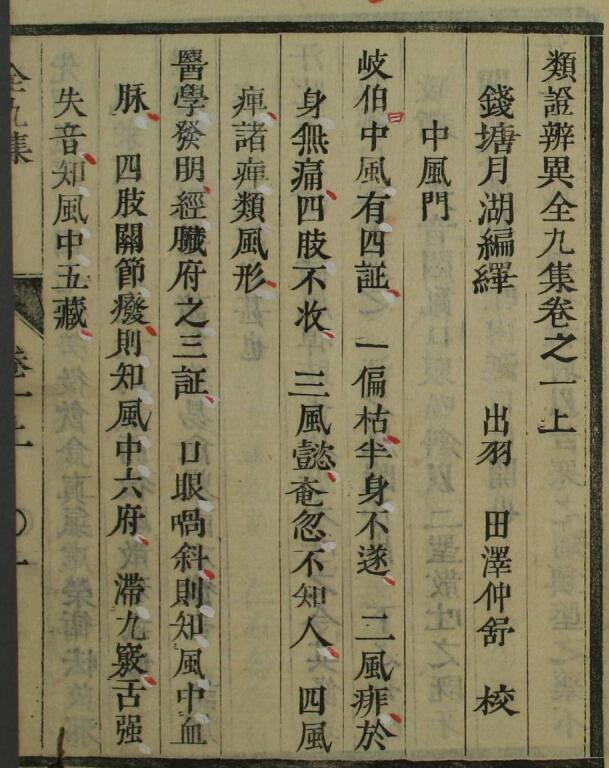 類證辨異全九集卷之一上
錢塘月湖編繹 出羽 田澤仲舒 校
中風門
岐伯曰中風有四証 一偏枯半身不遂 二風痱於
身無痛四肢不收 三風懿奄忽不知人 四風
痺諸痺類風形
醫學發明經臟府之三証 口眼喎斜則知風中血
脉 四肢關節癈則知風中六府 滯九竅舌强
失音知風中五藏
全九集 卷一上 〇一